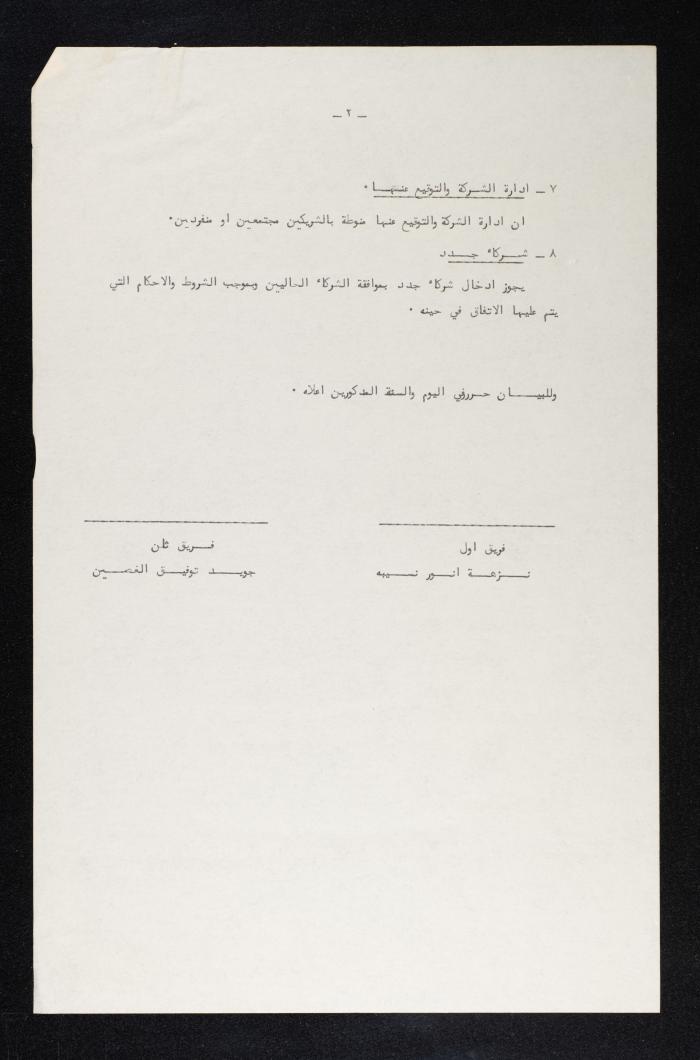 - ٢ -
٧ - ادارة الشركة والتوقيع عنها .
ان ادارة الشركة والتوقيع عنها منوطة بالشريكين مجتمعين او منفردين.
٨ - شركاء جدد
يجوز ادخال شركاء جدد بموافقة الشركاء الحاليين وبموجب الشروط والاحكام التي
يتم عليها الاتفاق في حينه .
وللبيان حررفي اليوم والسنة المذكورين اعلاه .
فريق اول
نزهة انور نسيبه
فريق ثان
جويد توفيق الغصين